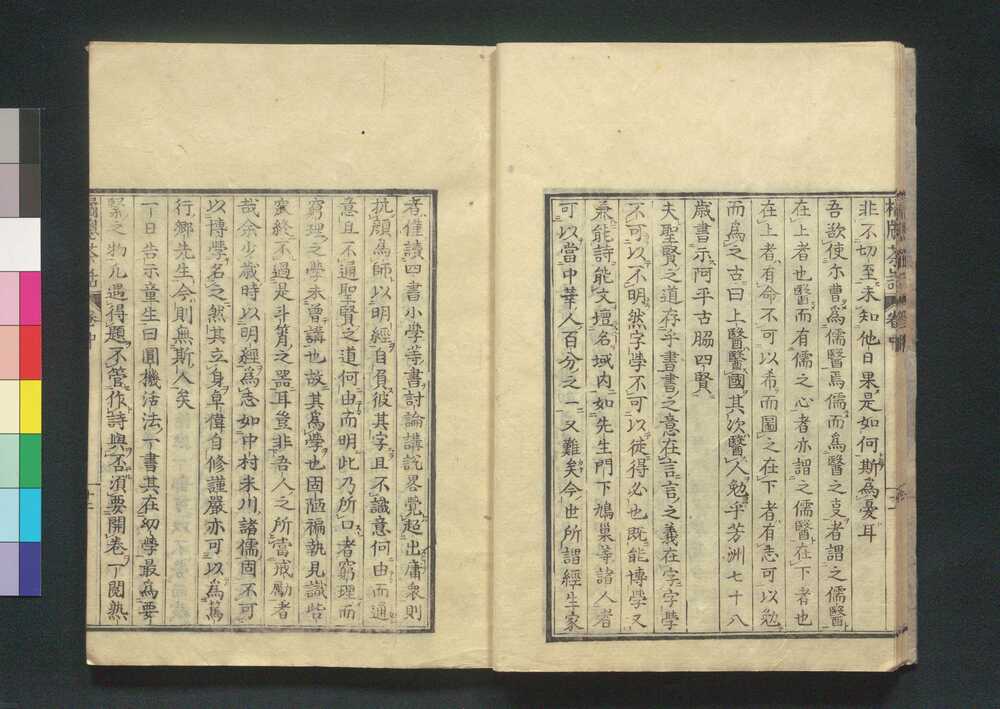 非不切至未知他日果是如何斯為憂耳
吾欲使尓曹為儒醫焉儒而為醫之者謂之儒醫
在上者也醫而有儒之心者亦謂之儒醫在下者也
在上者有命不可以希而圖之在下者有志可以勉
而為之古曰上醫醫國其次醫人勉乎芳洲七十八
歲書示阿平古腦四賢
夫聖賢之道存乎書書之意在言言之義在字字學
不可以不明然字学不可以徒得必也既能博学又
兼能詩能文壇名域内如先生門下鳩巢等諸人者
可以當中華人百分之一又難矣今世所謂經生家
者僅讀四書小学等書討論講説畧覺超出庸衆則
抗顔為師以明經自負彼其字且不識意何由而通
意且不通聖賢之道何由而明此乃所口者窮理而
窮理之學未曽講也故其為學也固陋褊執見識皆
窒終不過是斗筲之器耳豈非吾人之所當戒勵者
哉余少歳時以明經為志如中村米川諸儒固不可
以博學名之然其立身卓偉自修謹嚴亦可以為篤
行郷先生今則無斯人矣
一日告示童生曰圓機活法一書其在幼學最為要
緊之物凡遇得題不管作詩與否須要開卷一閲熟
橘窓茶話 卷中